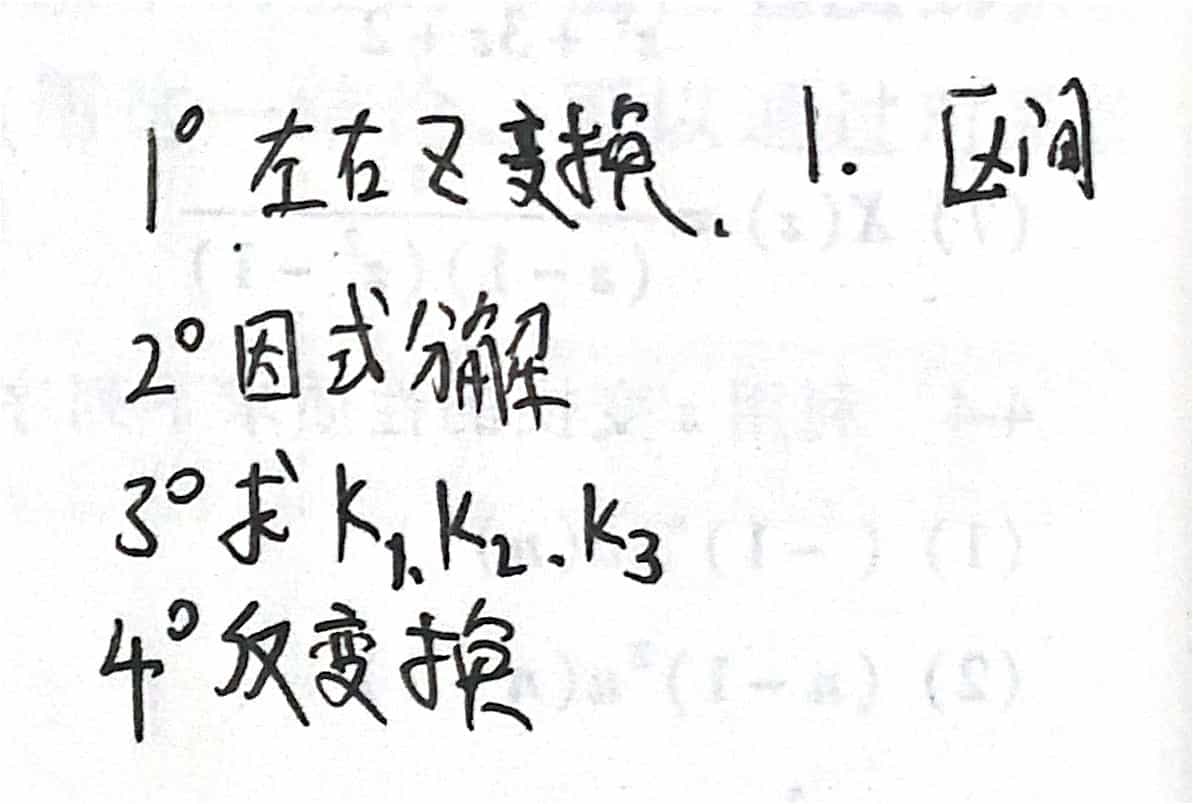 1° 左右Z变换. 1. 区间
2° 因式分解
3° 求 K₁, K₂. K₃
4° 反变换